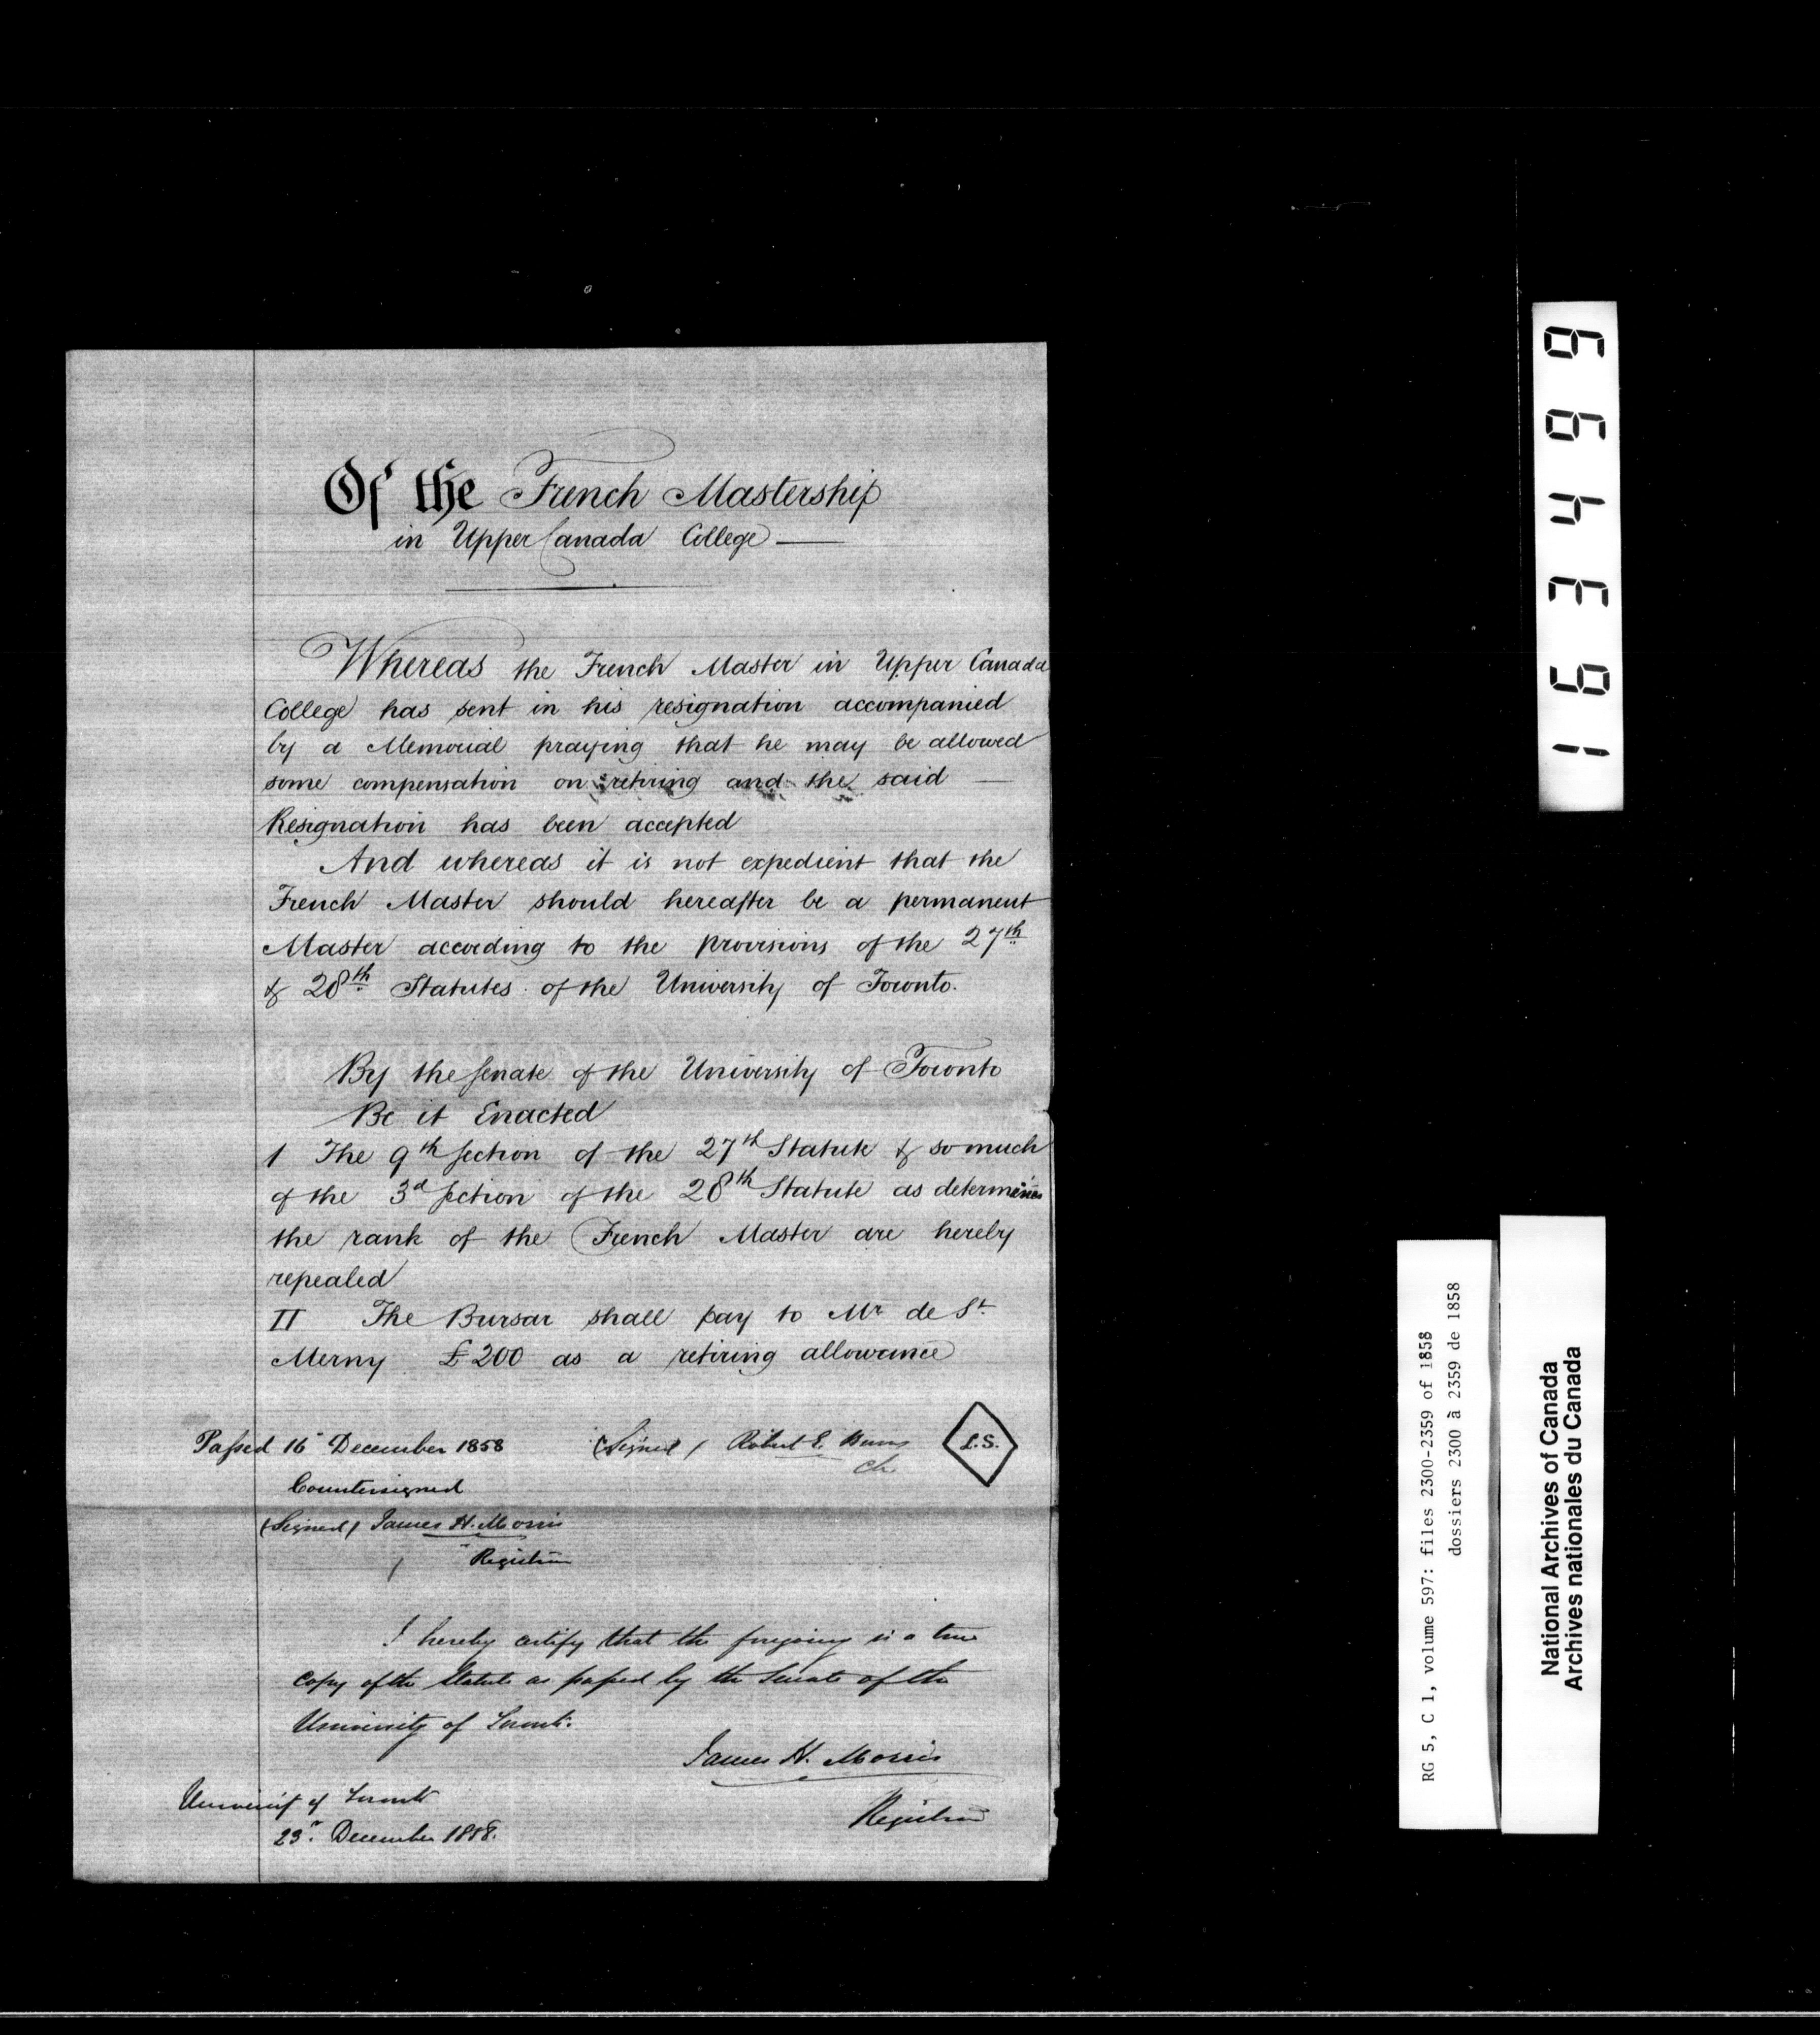 Of the French Mastership
in Upper Canada College —
Whereas the French Master in Upper Canada
College has sent in his resignation accompanied
by a Memorial praying that he may be allowed
some compensation on retiring and the said —
Resignation has been accepted
And whereas it is not expedient that the
French Master should hereafter be a permanent
Master according to the provisions of the 27th
& 28th Statutes of the University of Toronto.
By the Senate of the University of Toronto
Be it Enacted
1 The 9th Section of the 27th Statute & so much
of the 3d Section of the 28th Statute as determines
the rank of the French Master are hereby
repealed
II The Bursar shall pay to Mr de St
Merny £200 as a retiring allowance
Passed 16 December 1858 (Signed) Robert E. Burns L.S.
Ch.
Countersigned
(Signed) James H. Morris
Registrar
I hereby certify that the foregoing is a true
copy of the Statute as passed by the Senate of the
University of Toronto.
James H. Morris
Registrar
University of Toronto
23rd December 1858.
163499
RG 5, C 1, volume 597: files 2300-2359 of 1858
dossiers 2300 à 2359 de 1858
National Archives of Canada
Archives nationales du Canada